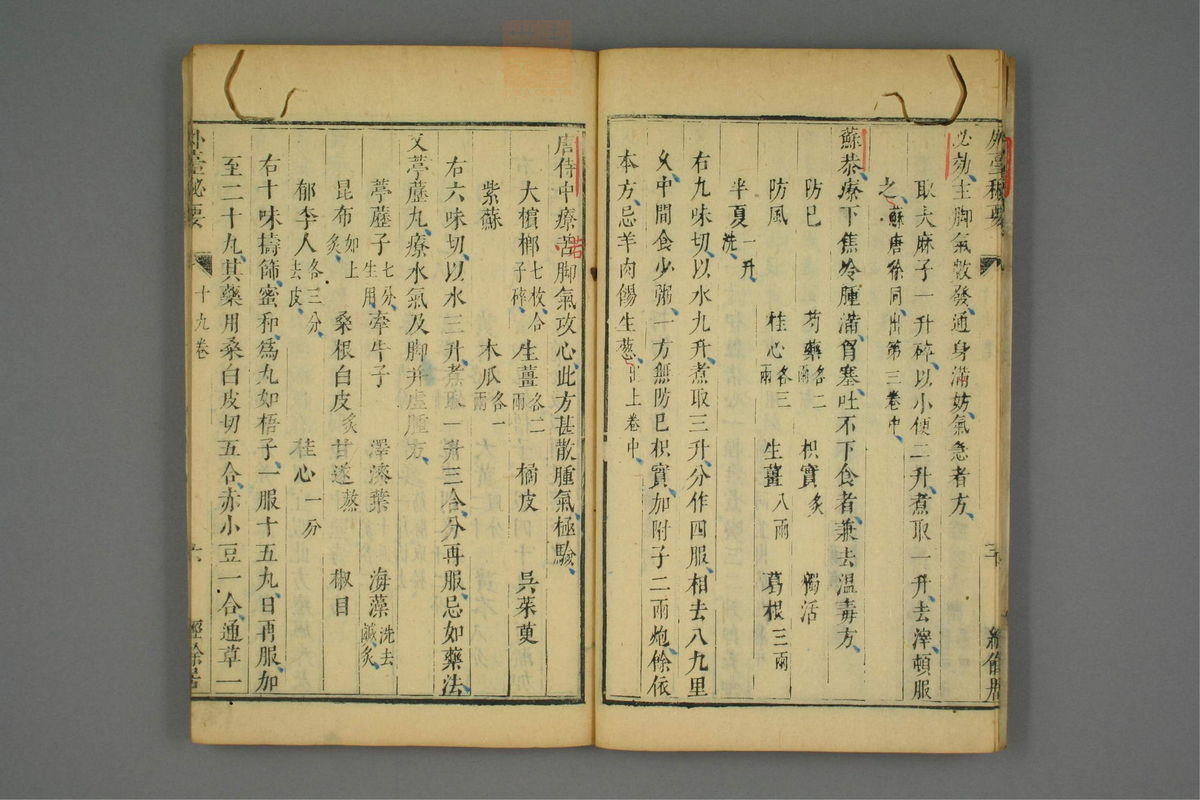 外臺秘要
必効主脚氣數發通身滿妨氣急者方
取大麻子一升碎以小便二升煮取一升去滓頓服
之蘇唐徐同出第三卷中
蘇恭療下焦冷腫滿胷塞吐不下食者兼去温毒方
防巳 芍藥各二兩 枳實炙 獨活
防風 桂心各三兩 生薑八兩 葛根三兩
半夏一升洗
右九味切以水九升煮取三升分作四服相去八九里
久中間食少粥一方無防巳枳實加附子二兩炮餘依
本方忌羊肉餳生葱出上卷中
唐侍中療苦脚氣攻心此方甚散腫氣極驗
大檳榔七枚合子碎 生薑各二兩 橘皮 吳茱萸
紫蘇 木瓜各一兩
右六味切以水三升煮取一升三合分再服忌如藥法
又葶藶丸療水氣及脚并虛腫方
葶藶子七分生用 牽牛子 澤漆葉 海藻洗去鹹炙
昆布如上炙 桑根白皮炙 甘遂蒸 椒目
郁李人各三分去皮 桂心一分
右十味擣篩蜜和爲丸如梧子一服十五丸日再服加
至二十丸其藥用桑白皮切五合赤小豆一合通草一
外臺秘要 十九卷 六 經餘居